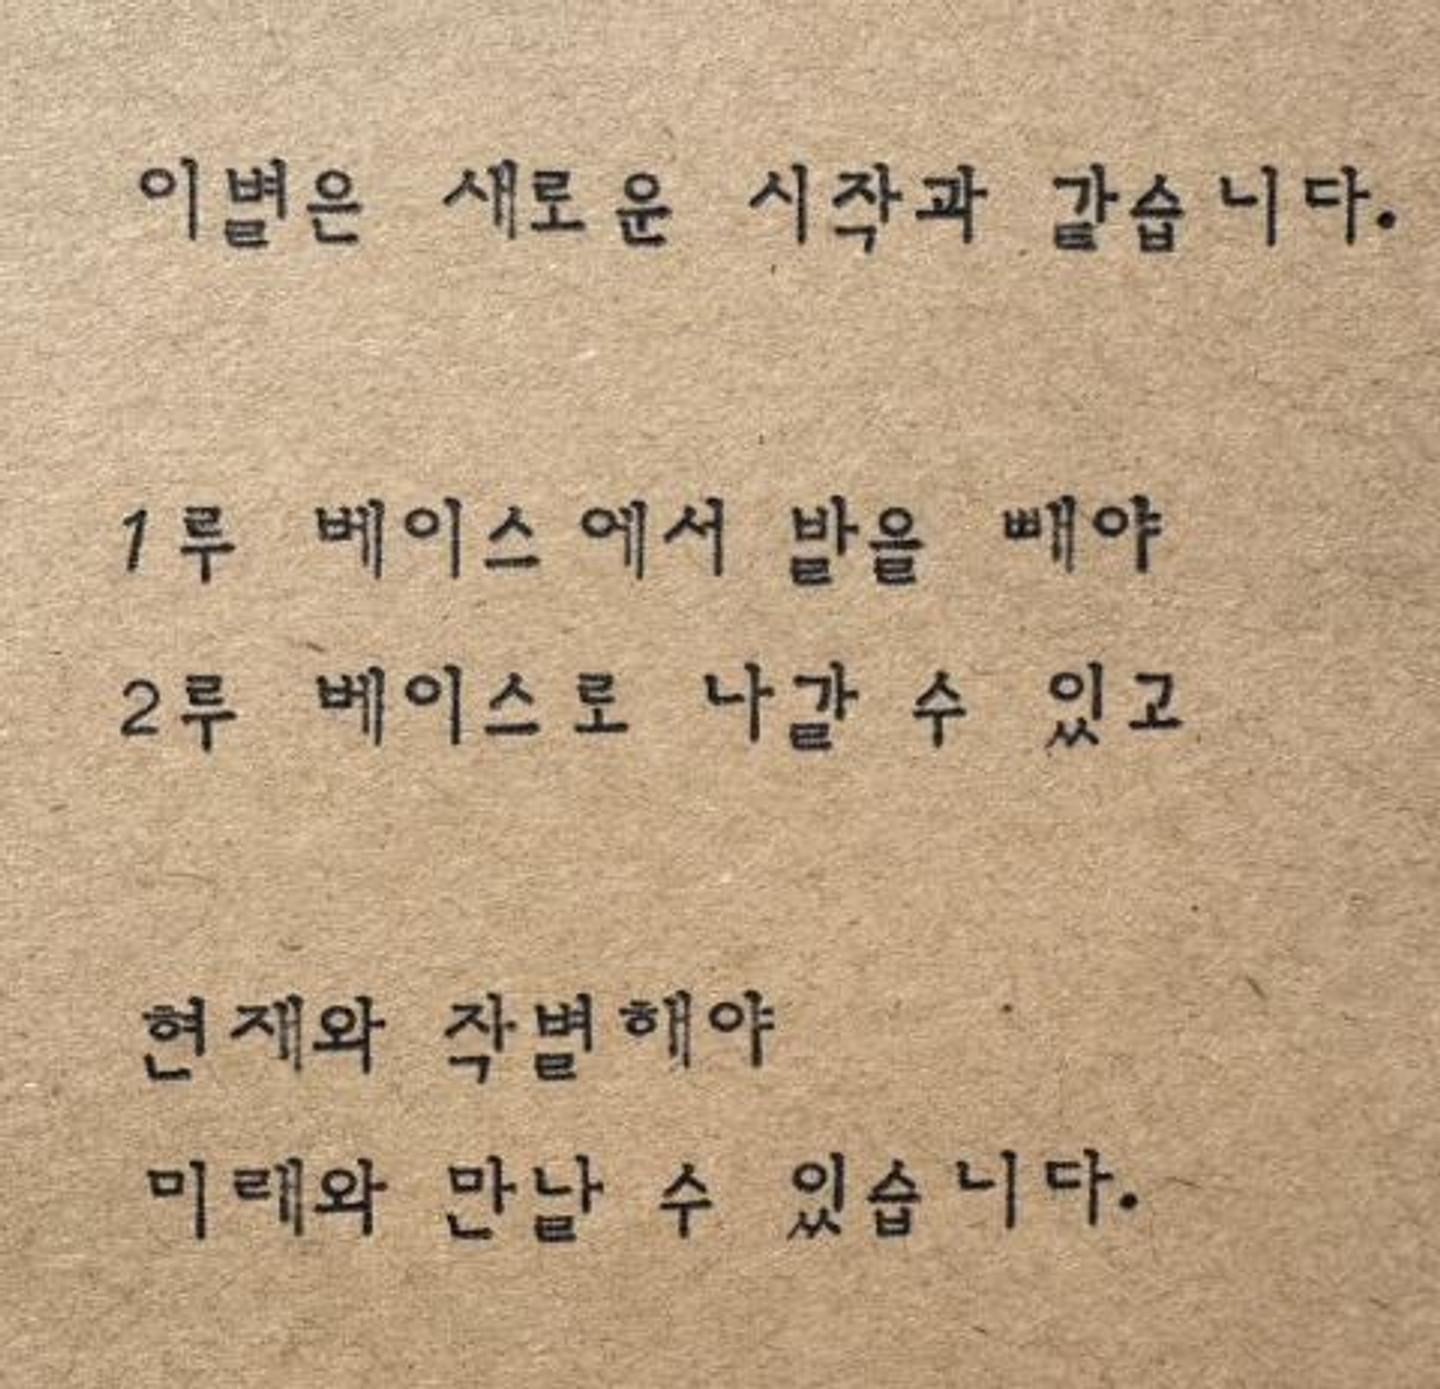 이별은 새로운 시작과 같습니다.
1루 베이스에서 발을 빼야
2루 베이스로 나갈 수 있고
현재와 작별해야
미래와 만날 수 있습니다.